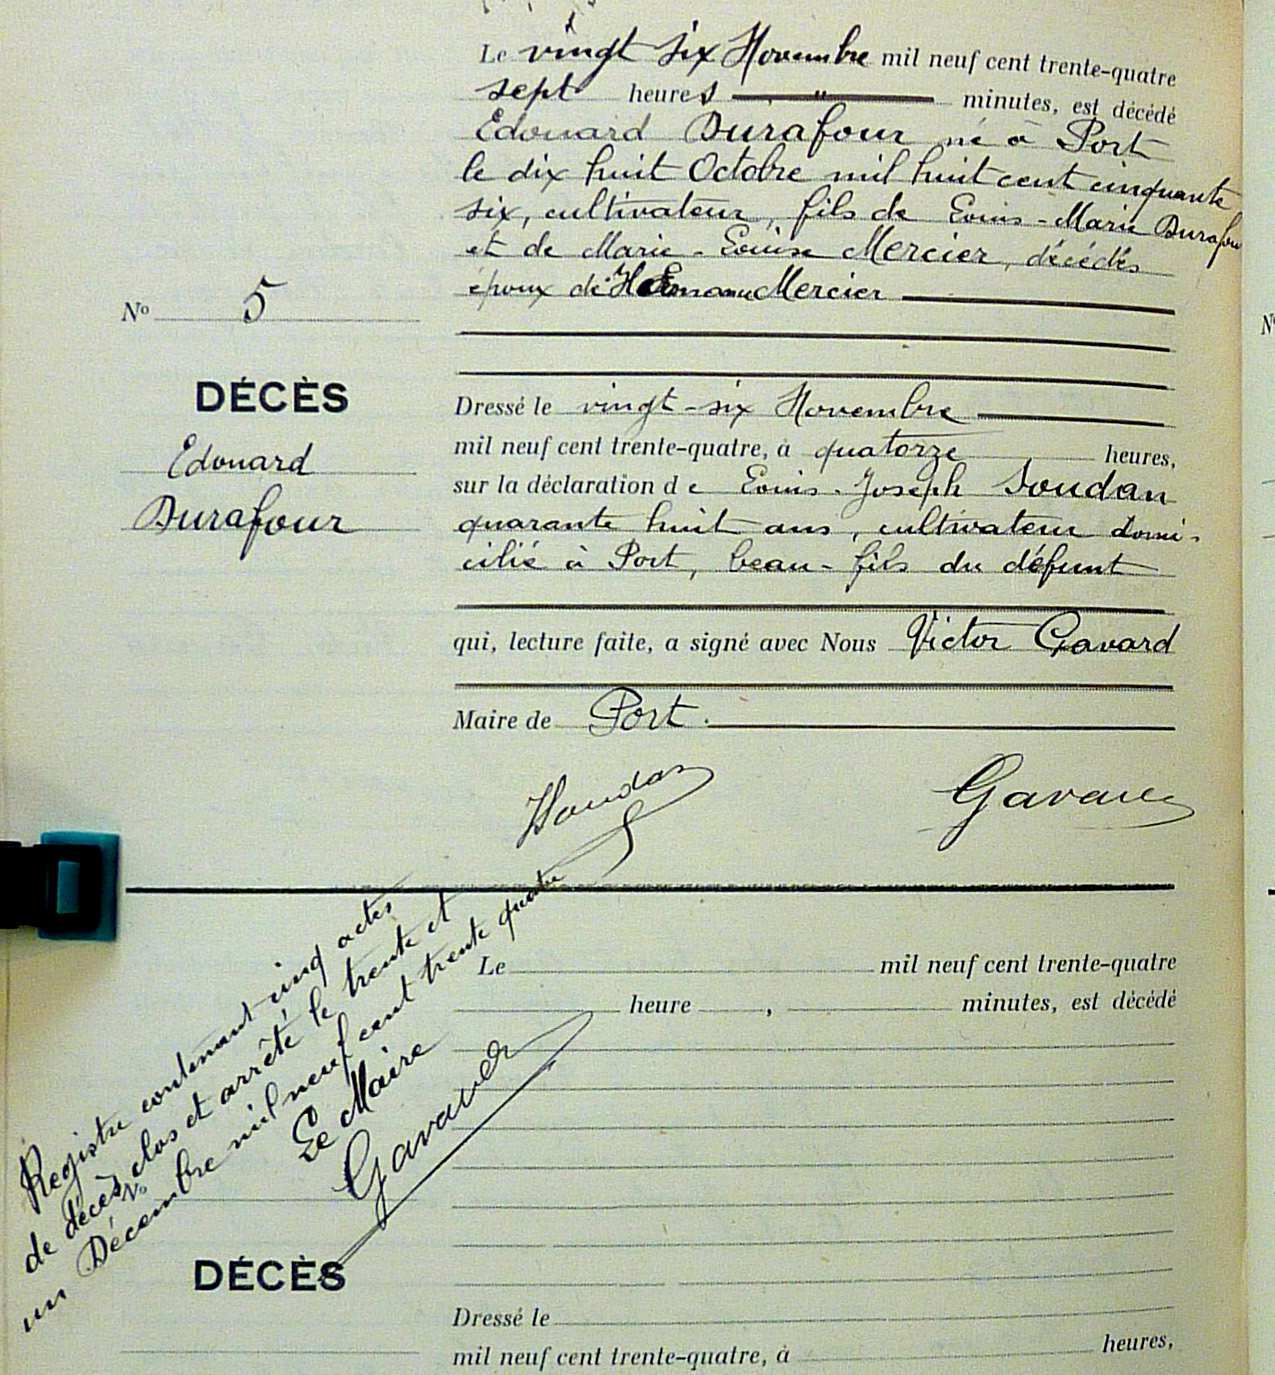 Le vingt six Novembre mil neuf cent trente-quatre
sept heures " minutes, est décédé
Edouard Durafour né à Port
le dix huit Octobre mil huit cent cinquante
six, cultivateur, fils de Louis-Marie Durafour
et de Marie-Louise Mercier, décédés
époux de Mercier
No 5
DÉCÈS
Edouard
Durafour
Dressé le vingt-six Novembre
mil neuf cent trente-quatre, à quatorze heures,
sur la déclaration de Louis-Joseph Soudan
quarante huit ans, cultivateur domi-
cilié à Port, beau-fils du défunt
qui, lecture faite, a signé avec Nous Victor Gavard
Maire de Port.
Soudan Gavard
Registre contenant cinq actes
de décès clos et arrêté le trente et
un Décembre mil neuf cent trente quatre
Le Maire
Gavard
Le mil neuf cent trente-quatre
heure , minutes, est décédé
No
DÉCÈS
Dressé le
mil neuf cent trente-quatre, à heures,
No